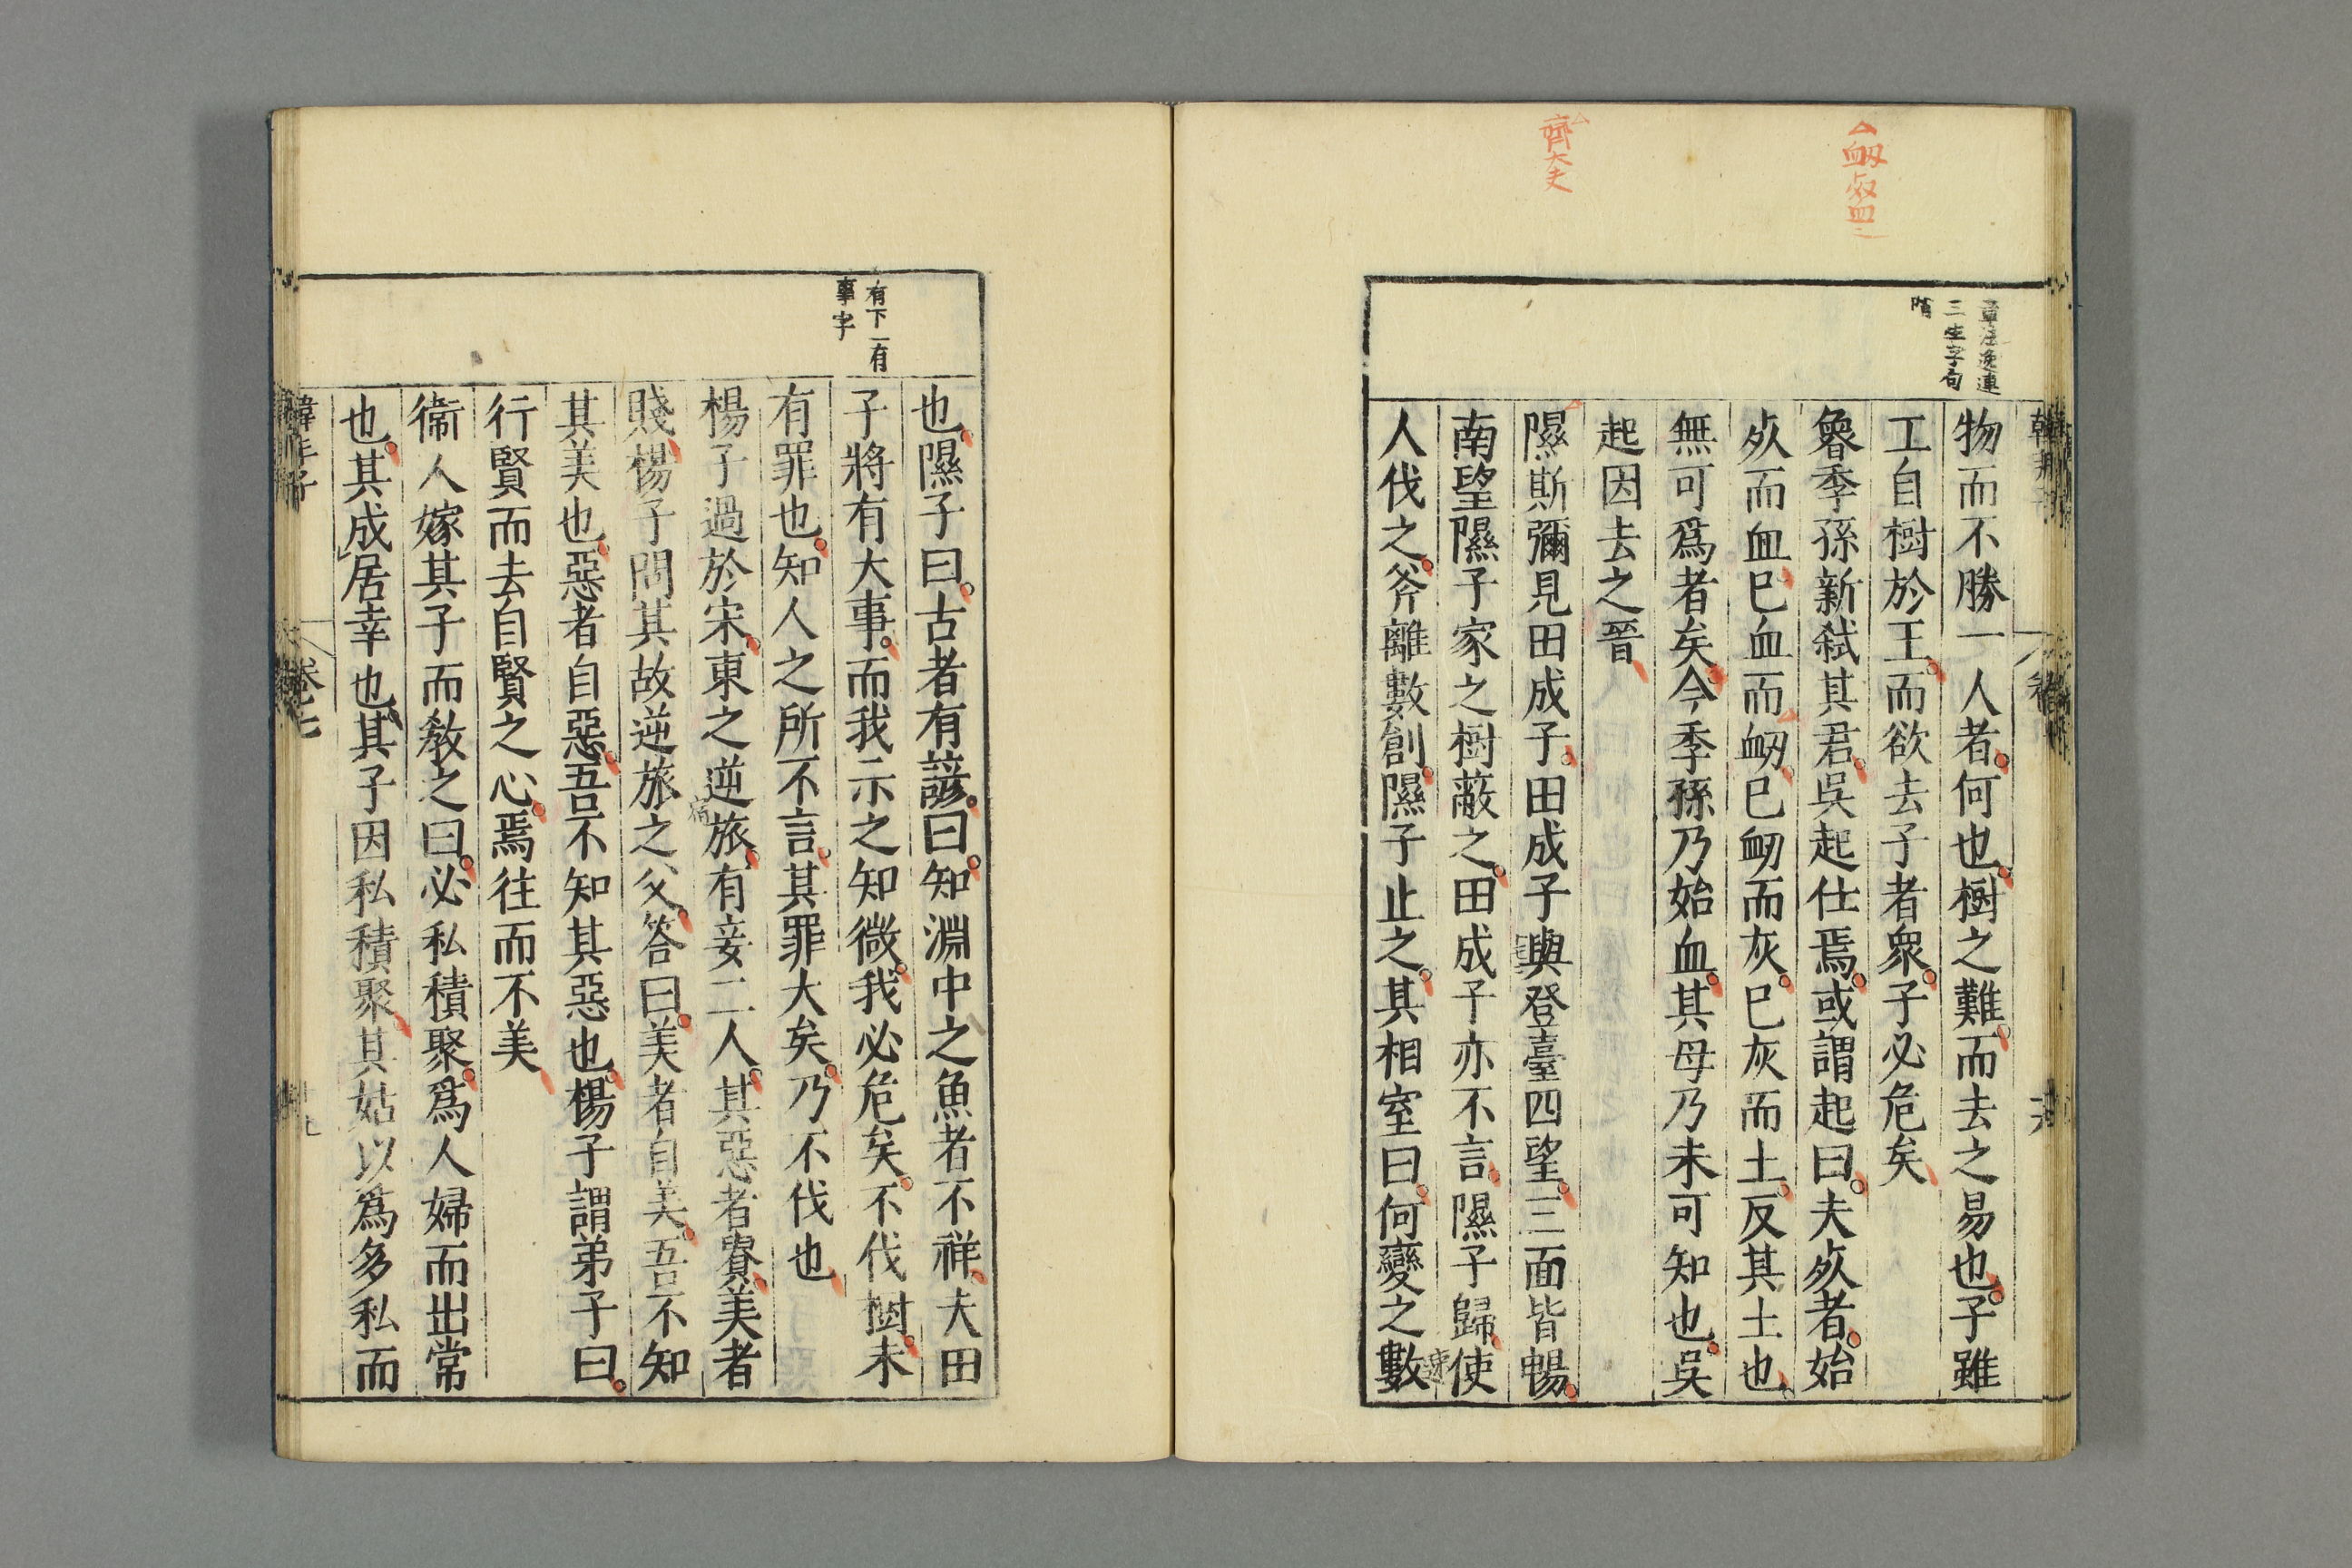 衂
齊大夫
三生字句
隋
物而不勝一人者何也樹之難而去之易也子雖
工自樹於王而欲去子者衆子必危矣
魯季孫新弑其君吳起仕焉或謂起曰夫㱙者始
㱙而血巳血而衂巳衂而灰巳灰而土反其土也
無可爲者矣今季孫乃始血其母乃未可知也吳
起因去之晉
隰斯彌見田成子田成子與登臺四望三面皆暢
南望隰子家之樹蔽之田成子亦不言隰子歸使
人伐之斧離數創隰子止之其相室曰何變之數
速
有下一有
事字
也隰子曰古者有諺曰知淵中之魚者不祥夫田
子將有大事而我示之知微我必危矣不伐樹未
有罪也知人之所不言其罪大矣乃不伐也
楊子過於宋東之逆旅有妾二人其惡者貴美者
賤楊子問其故逆旅之父答曰美者自美吾不知
其美也惡者自惡吾不知其惡也楊子謂弟子曰
行賢而去自賢之心焉往而不美
衞人嫁其子而敎之曰必私積聚爲人婦而出常
也其成居幸也其子因私積聚其姑以爲多私而
卷七